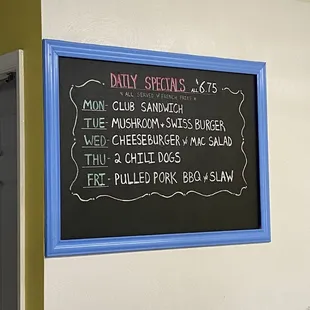 DAILY SPECTALS ALL $6.75
* ALL SERVED W FRENCH FRIES *
MON- CLUB SANDWICH
TUE- MUSHROOM + SWISS BURGER
WED- CHEESEBURGER W MAC SALAD
THU- 2 CHILI DOGS
FRI- PULLED PORK BBQ W SLAW